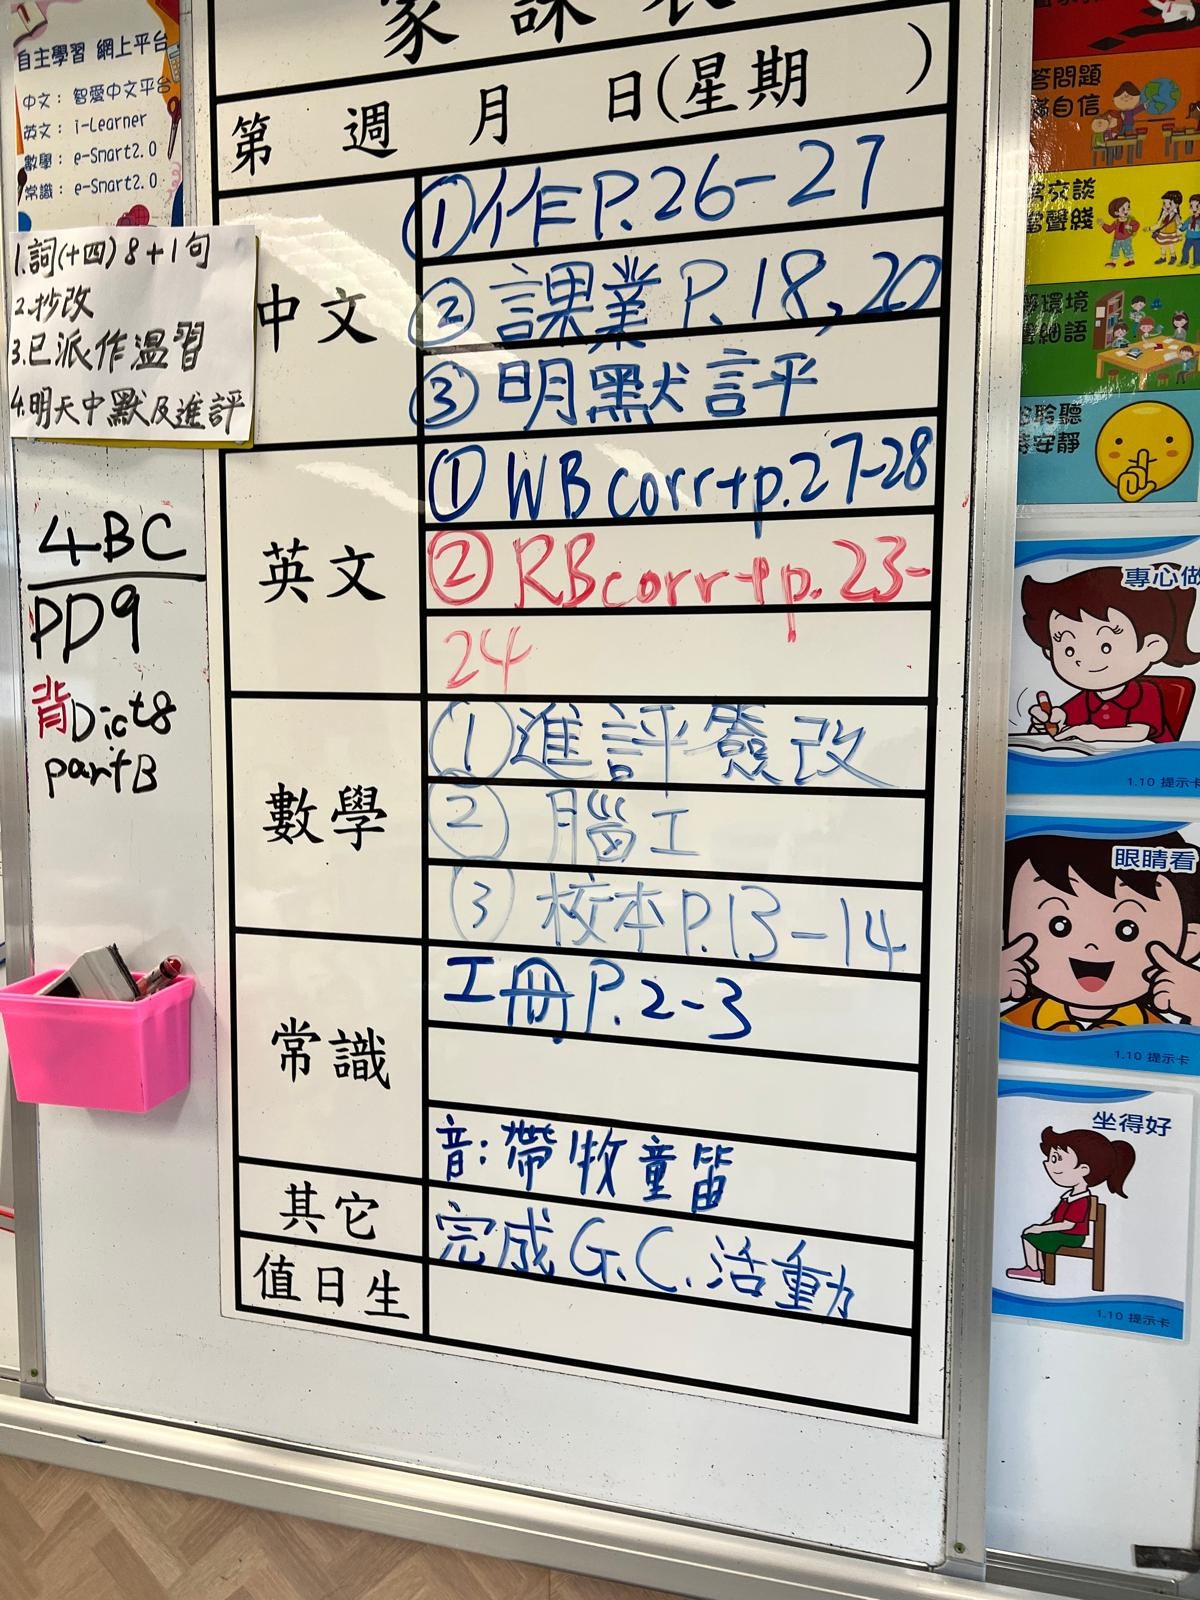 家課表
第 週 月 日(星期 )
自主學習 網上平台
中文: 智愛中文平台
英文: i-Learner
數學: e-Smart2.0
常識: e-Smart2.0
1.詞(十四) 8+1句
2.抄改
3.已派作温習
4.明天中默及進評
4BC
PD9
背Dict8
partB
中文
①作P.26-27
②課業P.18,20
③明默評
英文
①WB corr+p.27-28
②RBcorr+p.23-
24
數學
①進評簽改
②腦工
③校本P.13-14
常識
工冊P.2-3
音:帶牧童笛
其它
完成G.C.活動
值日生
答問題
自信
交談
聲綫
環境
細語
聆聽
安靜
專心做
1.10 提示卡
眼睛看
1.10 提示卡
坐得好
1.10 提示卡